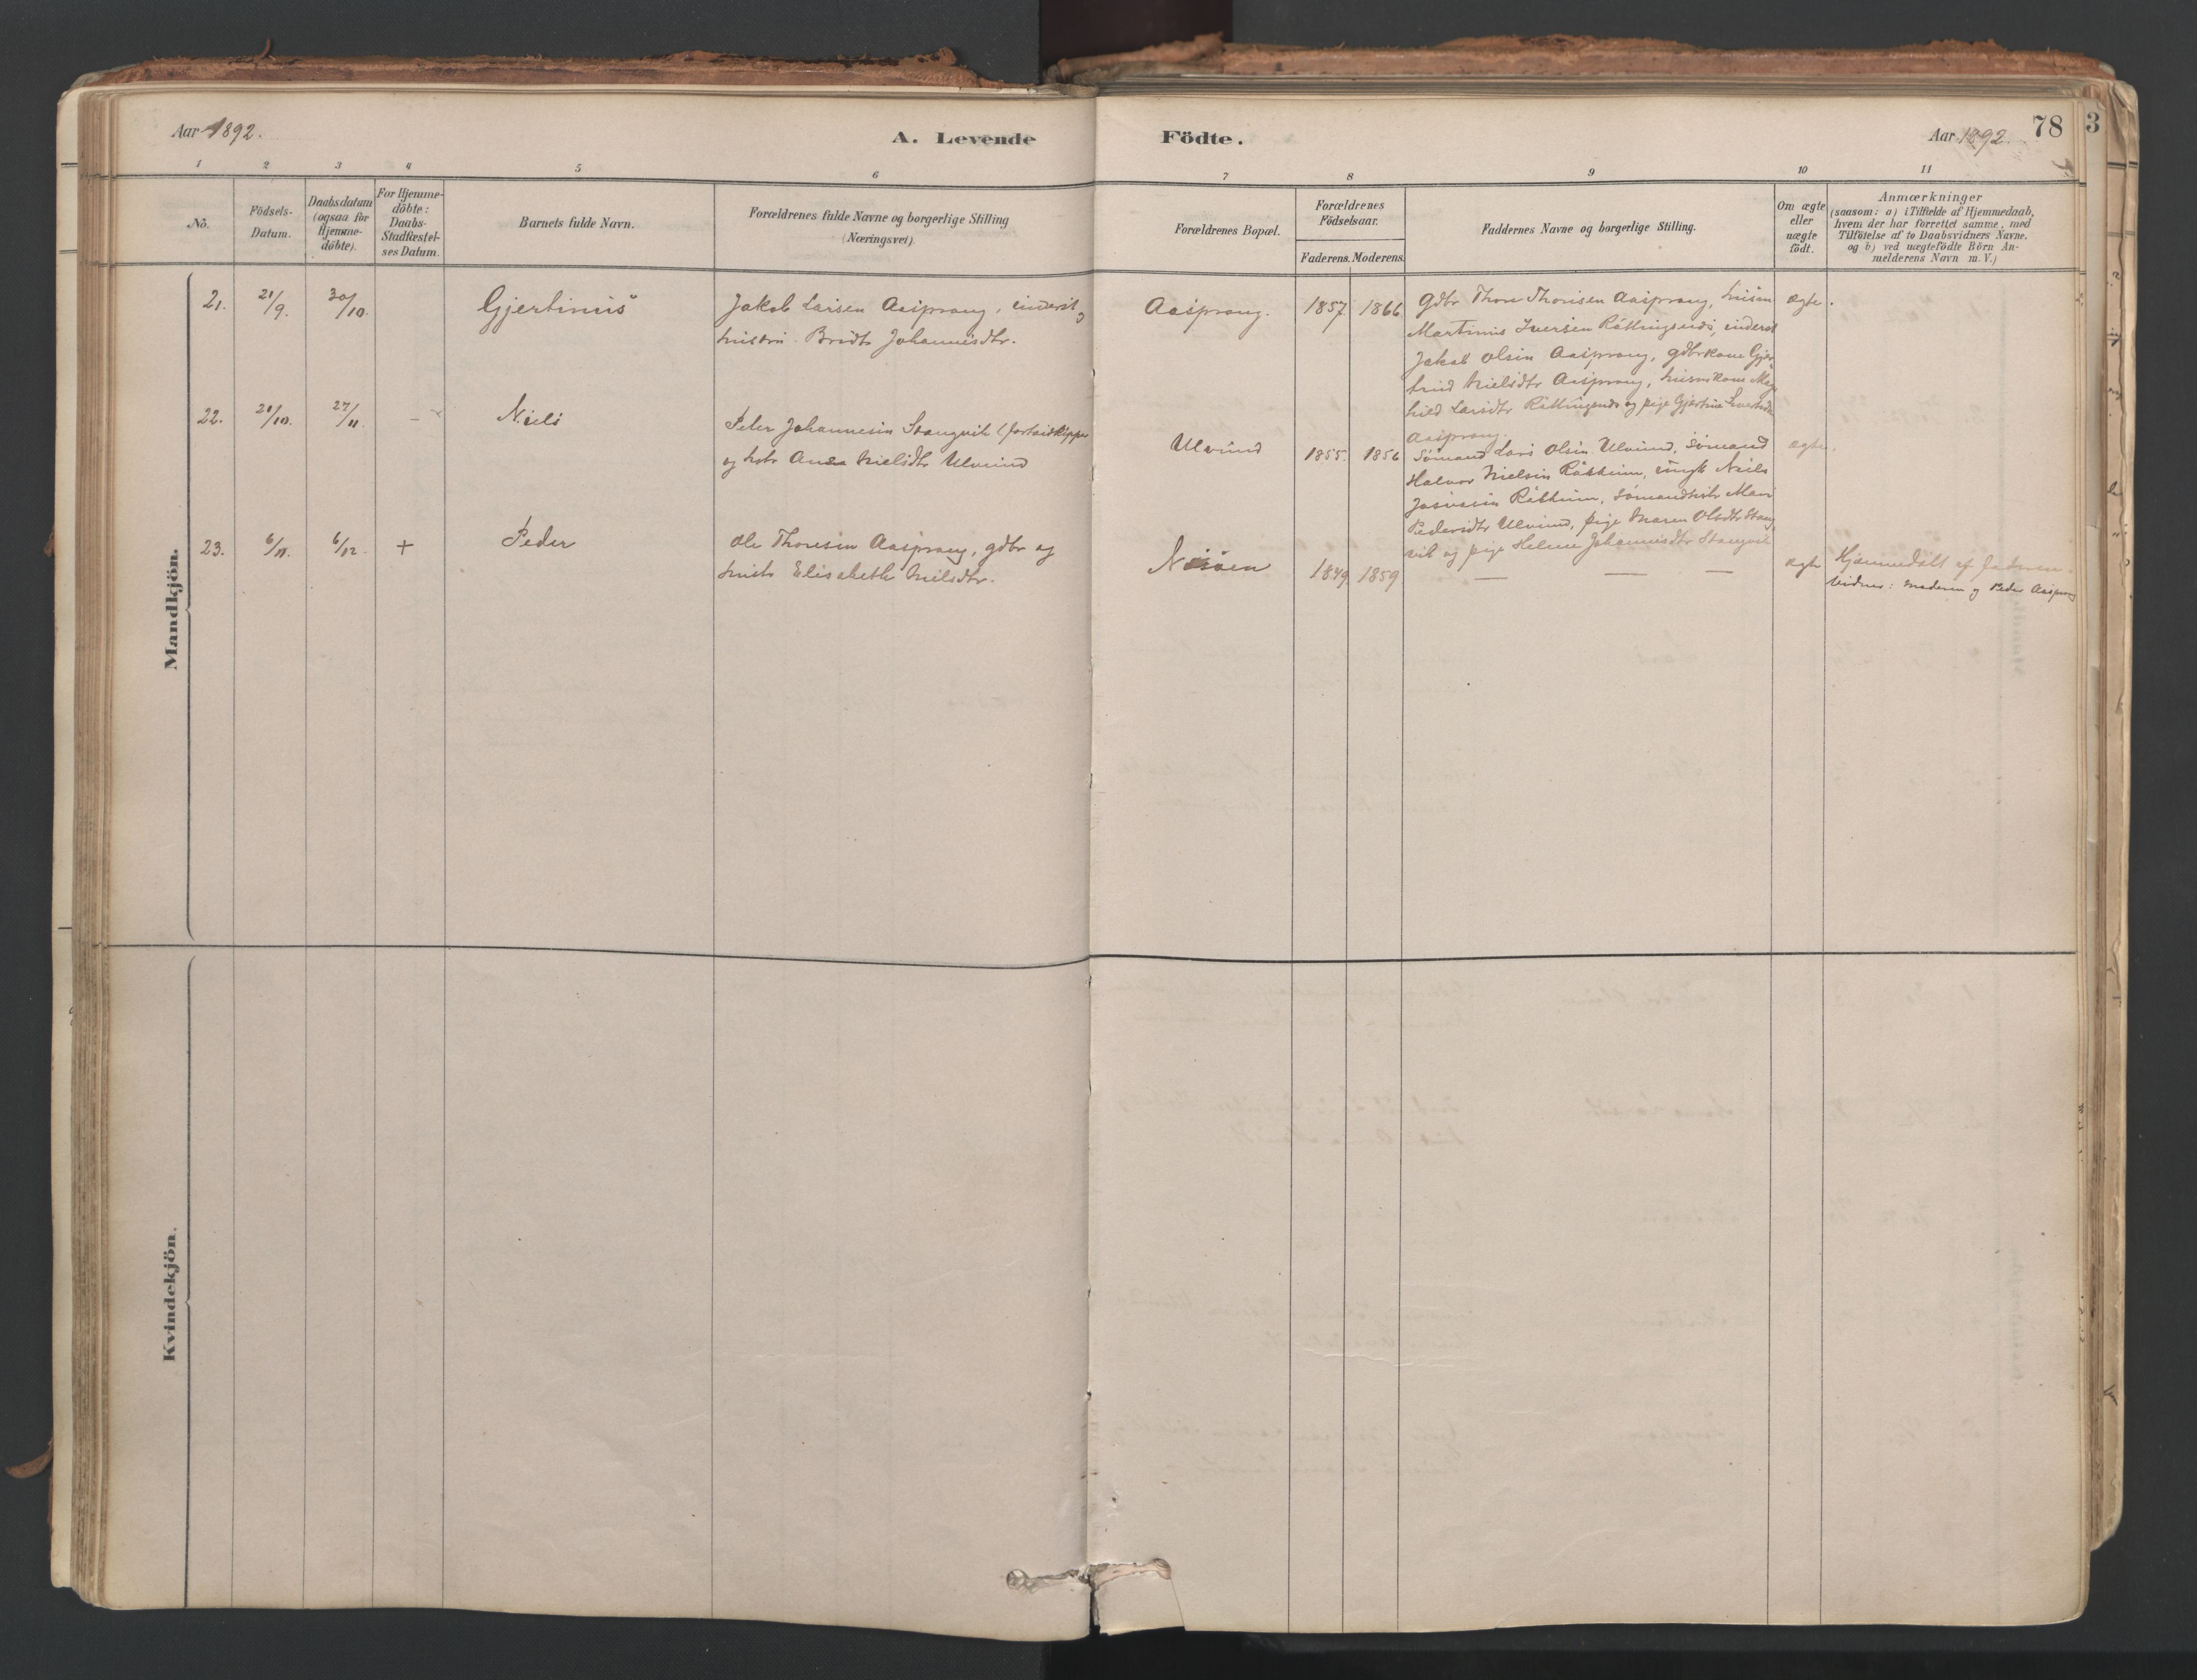 Aar 1892.
A. Levende Födte.
Aar 1892.
78
3
1 2 3 4 5 6 7 8 9 10 11
No.
Födsels-Datum.
Daabsdatum (ogsaa for Hjemme-döbte).
For Hjemme-döbte: Daabs-Stadfæstel-ses Datum.
Barnets fulde Navn.
Forældrenes fulde Navne og borgerlige Stilling
(Næringsvei)
Forældrenes Bopæl.
Forældrenes Födselsaar.
Faderens. Moderens.
Faddernes Navne og borgerlige Stilling.
Om ægte eller uægte födt.
Anmærkninger
(saasom: a) i Tilfælde af Hjemmedaab,
hvem der har forrettet samme, med
Tilföielse af to Daabsvidners Navne,
og b) ved uægtefödte Börn An-
melderens Navn m. V.)
Mandkjön.
21. 21/9. 30/10. Gjertinus
Jakob Larsen Aasprang, inderst
hustru Bridt Johannesdtr.
Aasprang. 1857 1866
Gdbr Thore Thoresen Aasprang,
Martinus Iversen Röttingsnæs, inderst
Jakob Olsen Aasprang, gdbrkone Gjer
trud Nielsdtr Aasprang, husmkone
Larsdtr Röttingsnæs og pige Gjertine
Aasprang
ægte.
22. 21/10. 27/11. - Niels
Peter Johannesen Stangvik
og hstr Ane Nielsdtr Ulvund
Ulvund 1855. 1856
Sömand Lars Olsen Ulvund, Sömand
Halvor Nielsen Röttheim, ungk Niels
Röttheim, Sömandhstr Mari
Pedersdtr Ulvund, pige Maren Olsdtr Stang
vik og pige Helene Johannesdtr Stangvik
ægte.
23. 6/11. 6/12. + Peder
Ole Thoresen Aasprang, gdbr og
hustr Elisabeth Nielsdtr.
Nisöen 1849 1859
— — —
ægte
Hjemmedöbt af Faderen.
Vidner: Moderen og Peder Aasprang
Kvindekjön.